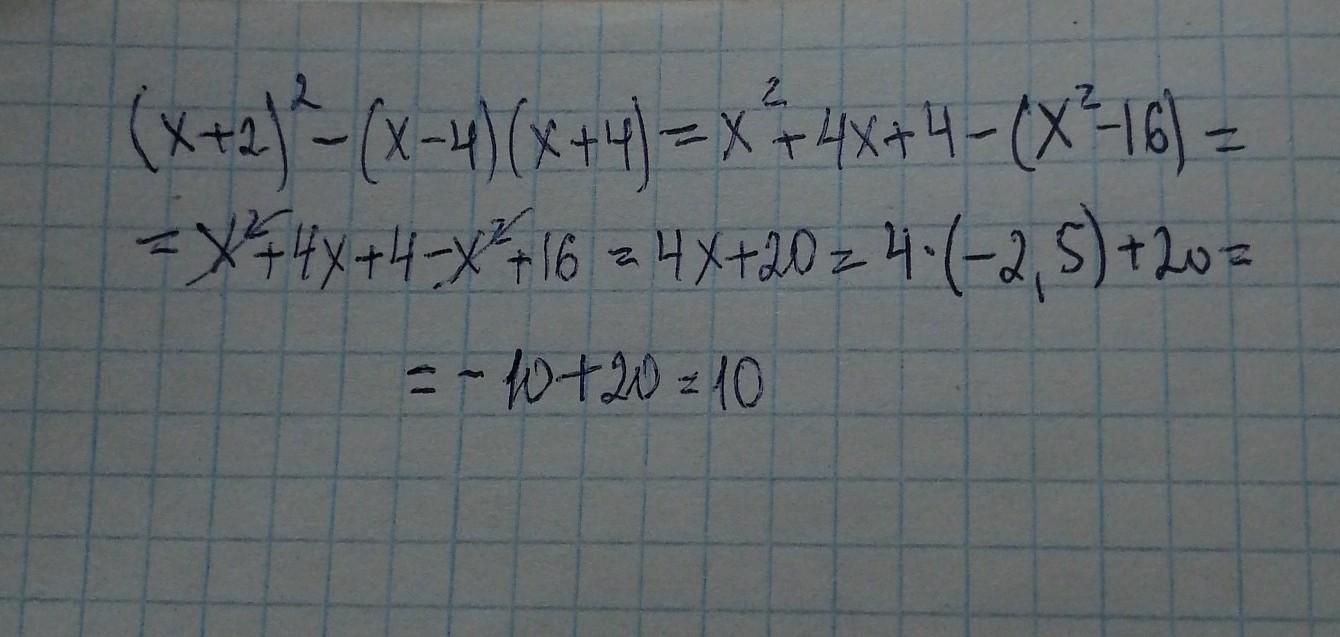 (x+2)² - (x-4)(x+4) = x² + 4x + 4 - (x² - 16) =
= x² + 4x + 4 - x² + 16 = 4x + 20 = 4·(-2,5) + 20 =
= -10 + 20 = 10